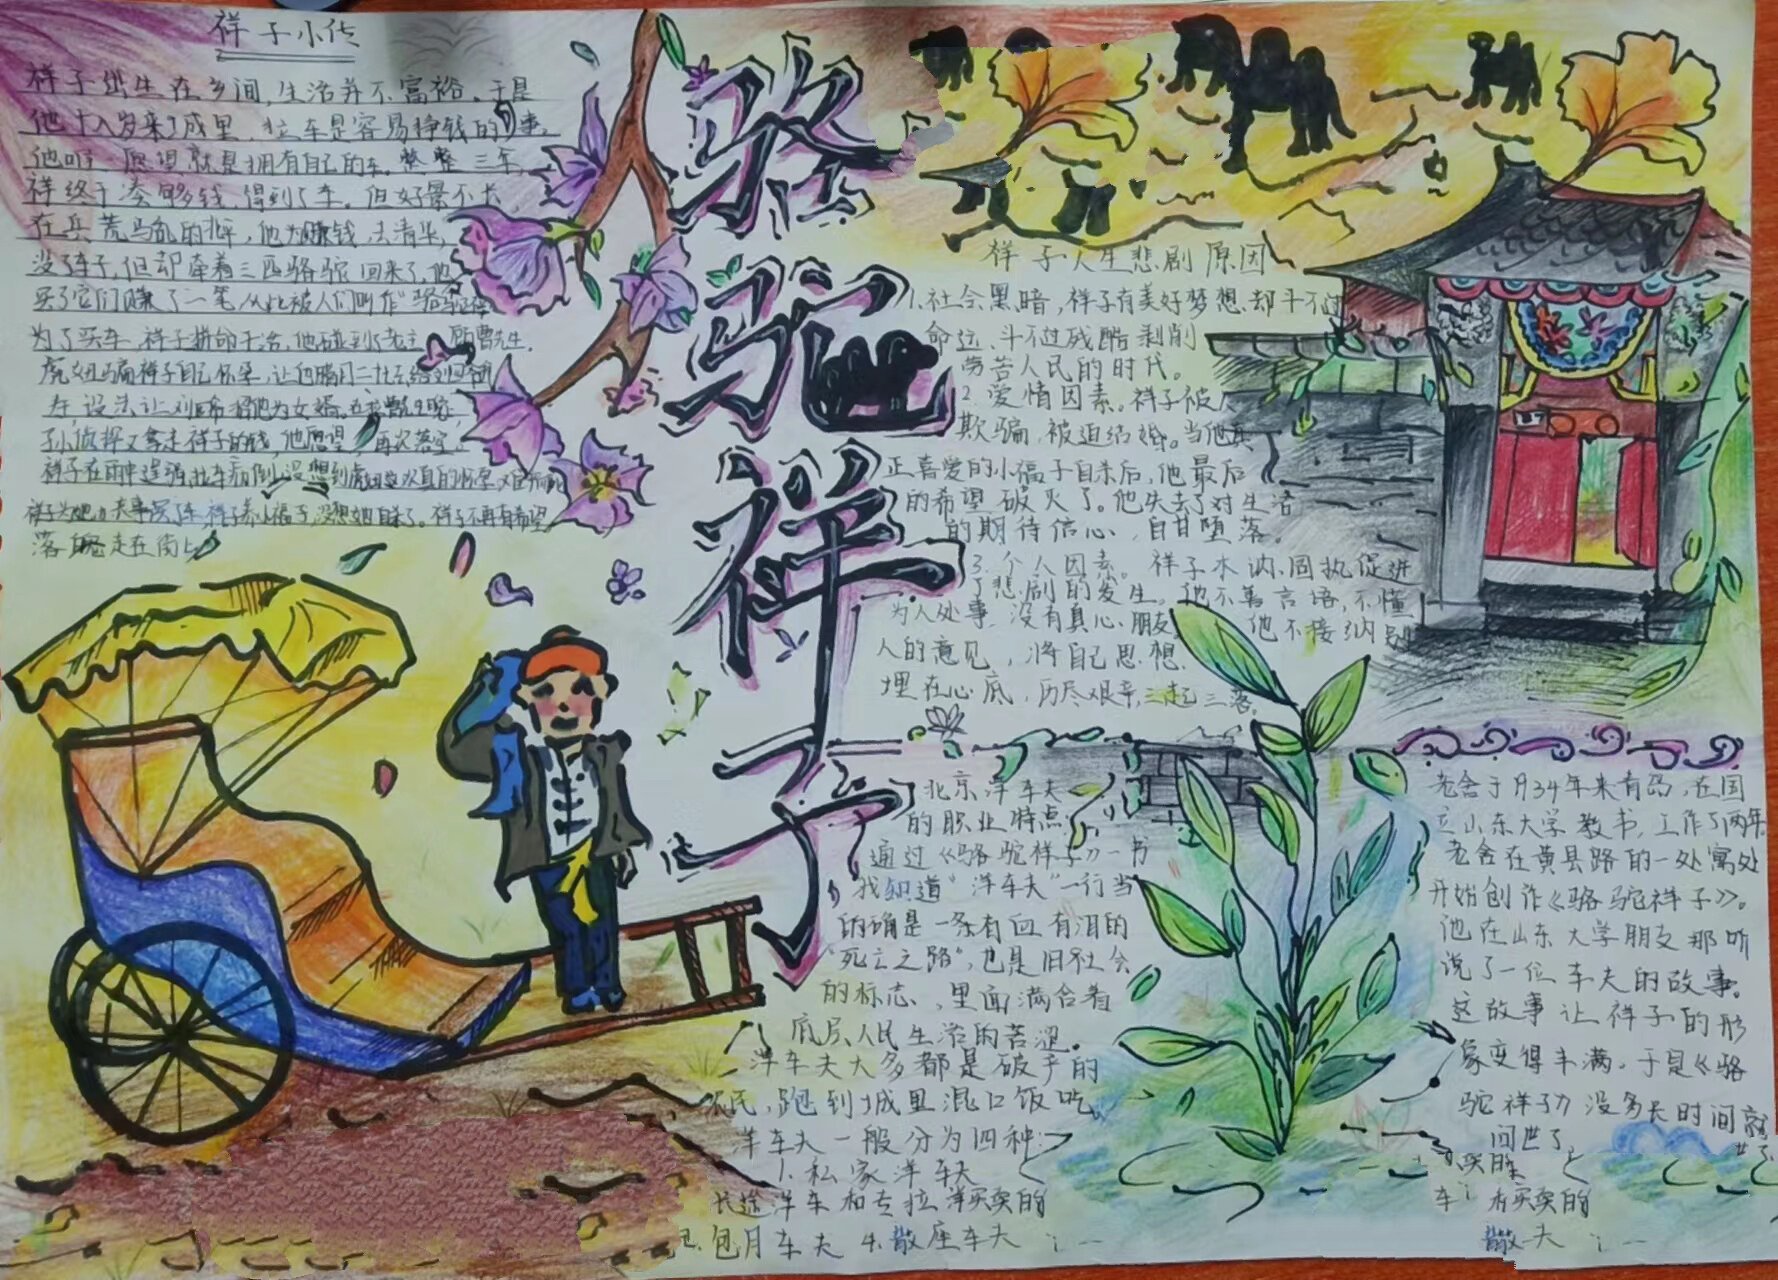 祥子小传
祥子出生在乡间,生活并不富裕,于是
他十八岁来了城里,拉车是容易挣钱的事。
他唯一愿望就是拥有自己的车。整整三年,
祥终于凑够钱,得到了车。但好景不长
在兵荒马乱的北平,他为赚钱,去清华,
没了车子,但却牵着三匹骆驼回来了,他
买了它们赚了一笔,从此被人们叫作"骆驼祥
为了买车,祥子拼命干活,他碰到了老主顾曹先生,
虎妞骗祥子自己怀孕,让他腊月二十七给刘
寿,设法让刘 招他为女婿。
了小侦探又拿走祥子的钱,他愿望,再次落空
祥子在雨中逞强拉车病倒,没想到虎妞这次真的怀孕
祥子为她办丧事买了车 祥子 小福子,没想她自杀了。祥子不再有希望
落 走在街上
骆驼祥子
祥子人生悲剧原因
1.社会黑暗,祥子有美好梦想,却斗不过
命运、斗不过残酷剥削
劳苦人民的时代。
2.爱情因素。祥子被人
欺骗,被迫结婚。当他真
正喜爱的小福子自杀后,他最后
的希望破灭了。他失去了对生活
的期待信心,自甘堕落。
3.个人因素。祥子木讷、固执促进
了悲剧的发生。他不善言语,不懂
为人处事,没有真心朋友, 他不接纳别
人的意见,将自己思想
埋在心底,历尽艰辛,三起三落。
北京洋车夫
的职业特点:
通过《骆驼祥子》一书
我知道"洋车夫"一行当
的确是一条有血有泪的
"死亡之路",也是旧社会
的标志,里面满含着
底层人民生活的苦涩。
洋车夫大多都是破产的
农民,跑到城里混口饭吃。
洋车夫一般分为四种:
1.私家洋车夫
长途洋车和专拉洋买卖的
包月车夫 4.散座车夫
老舍于1934年来青岛,在国
立山东大学教书,工作了两年
老舍在黄县路的一处寓处
开始创作《骆驼祥子》。
他在山东大学朋友那听
说了一位车夫的故事。
这故事让祥子的形
象变得丰满。于是《骆
驼祥子》没多长时间就
问世了
车 买卖的
散 夫